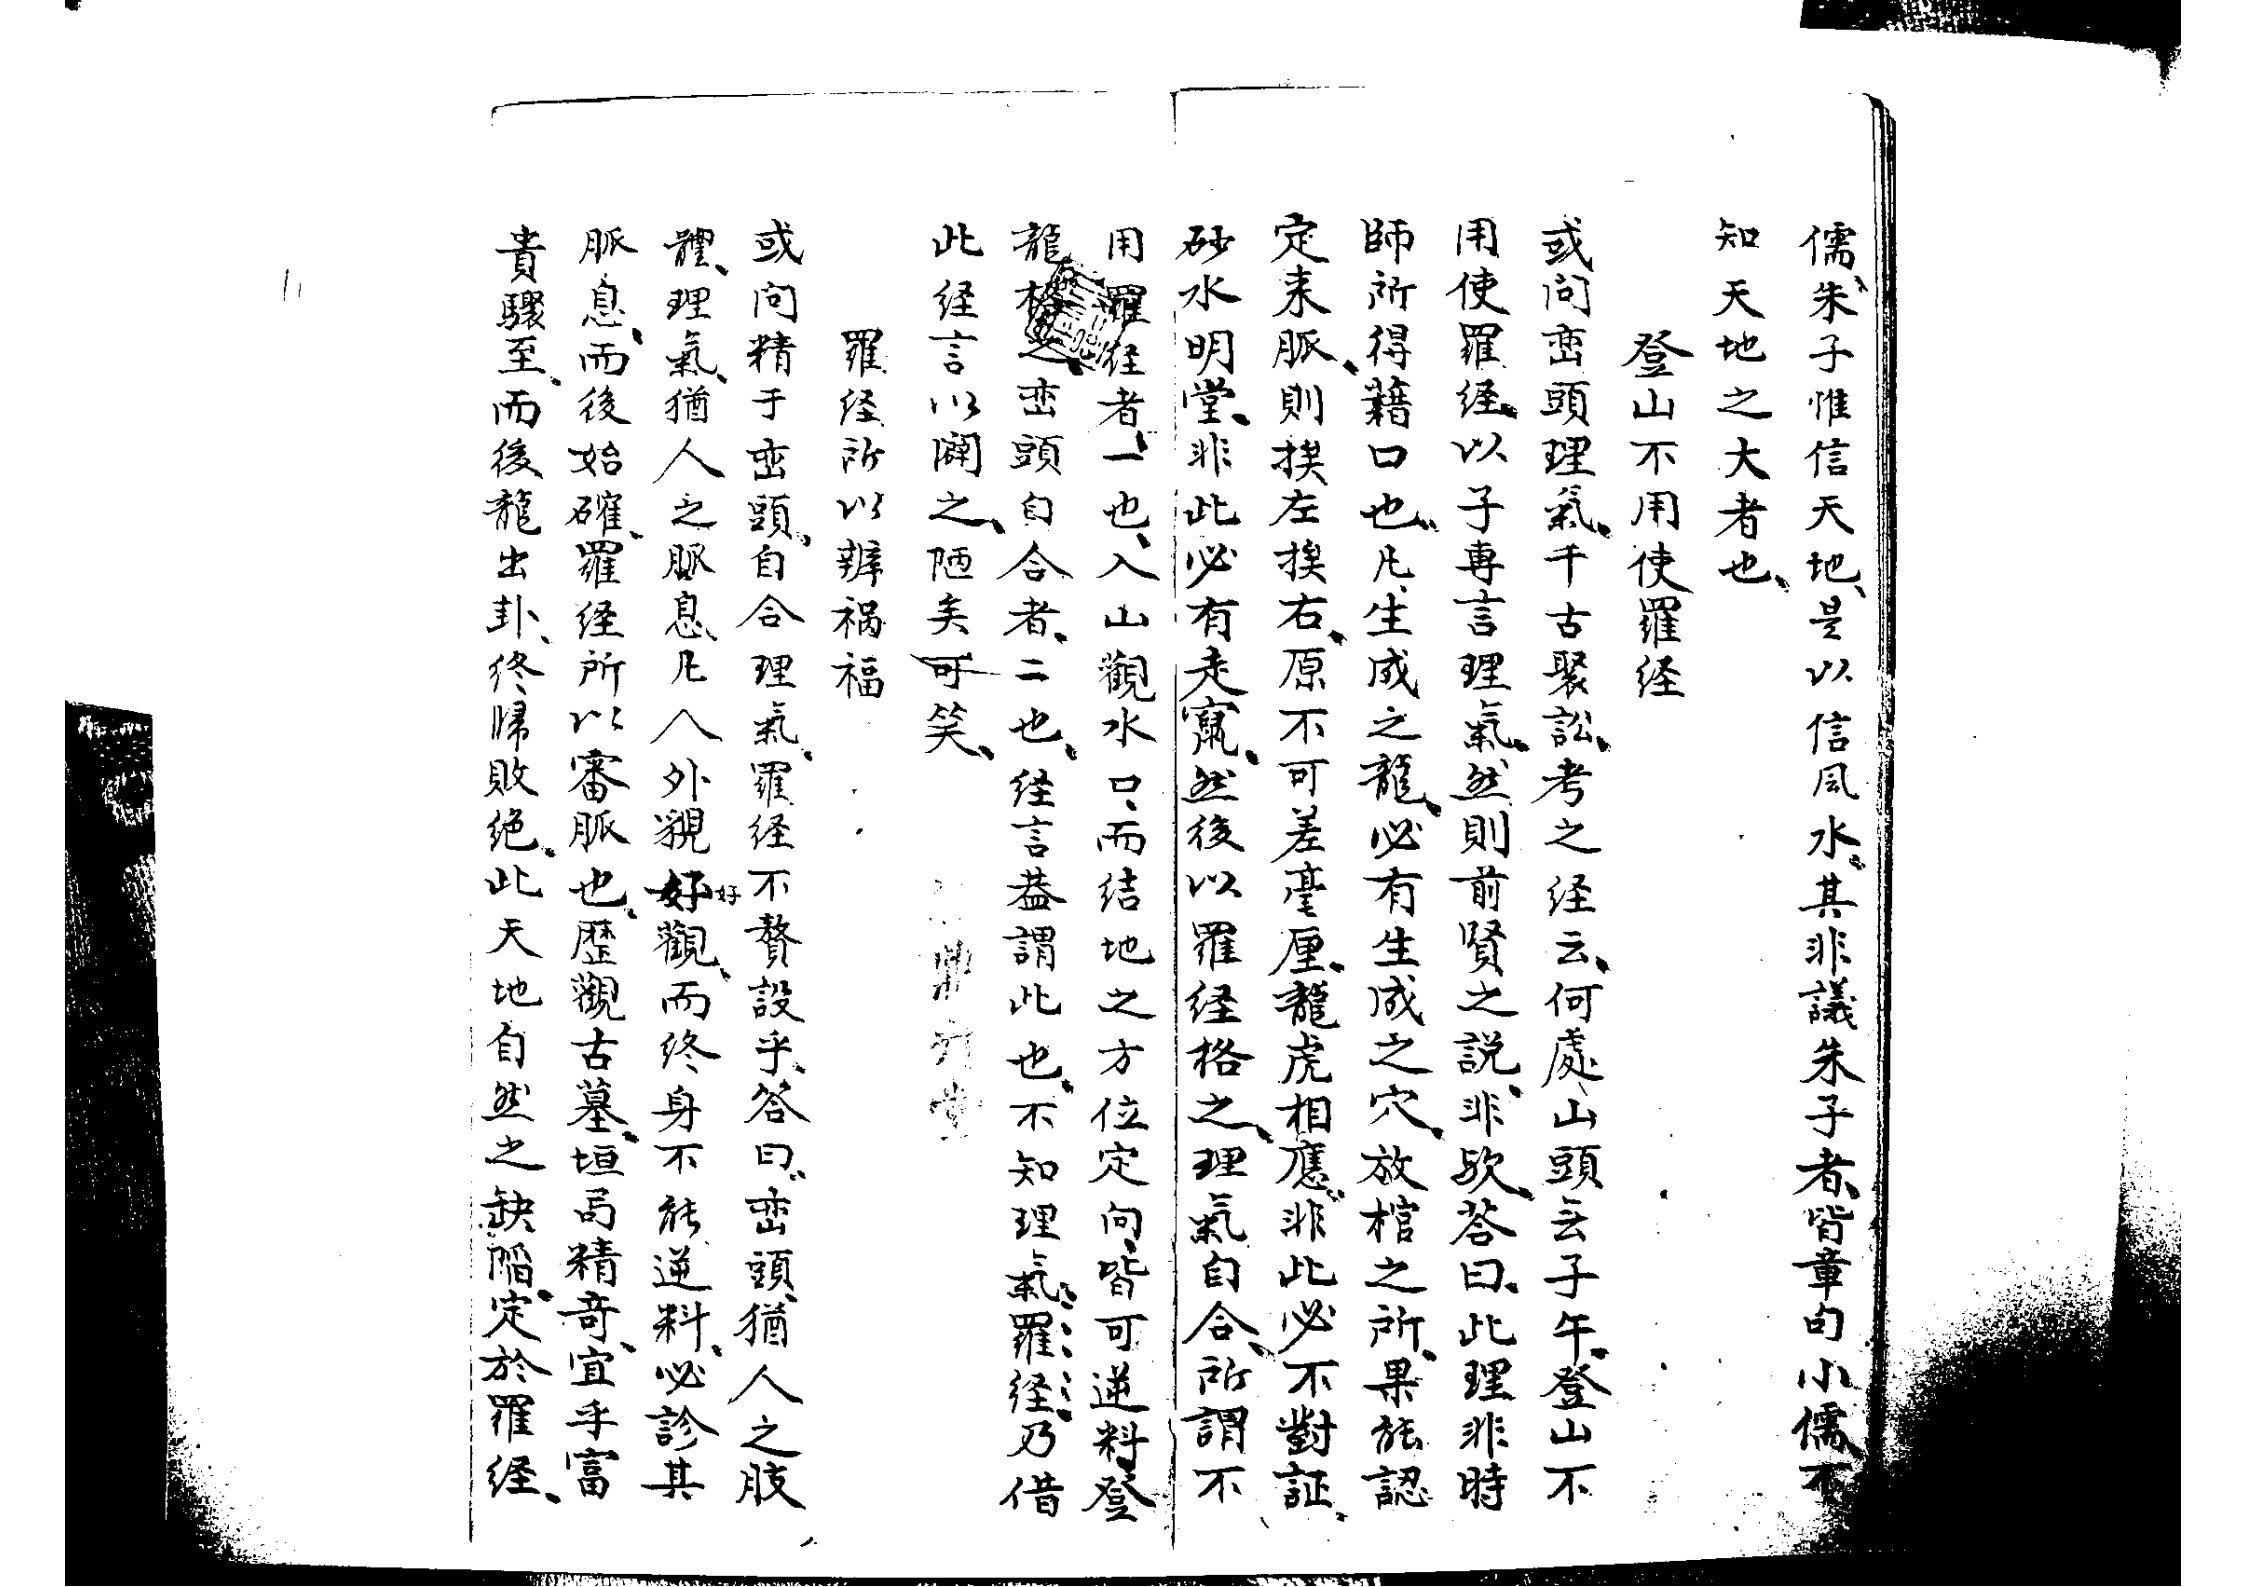 儒、朱子惟信天地、是以信风水、其非議朱子者、皆章句小儒不
知天地之大者也、
登山不用使羅経
或问峦頭理氣、千古聚訟、考之経云、何處山頭无子午、登山不
用使羅経、以子専言理氣、然則前賢之説、非欤、答曰、此理非時
師所得藉口也、凡生成之龍、必有生成之穴、放棺之所、果能認
定来脈、則挨左挨右、原不可差毫厘、龍虎相應、非此必不對証、
砂水明堂、非此必有走竄、然後以羅経格之、理氣自合、所謂不
用羅経者、一也、入山觀水口、而结地之方位定向、皆可逆料、登
龍格之峦頭自合者、二也、経言葢謂此也、不知理氣羅経、乃借
此経言以闢之、陋矣可笑、
羅経所以辨祸福
或问精于峦頭、自合理氣、羅経不贅設乎、答曰、峦頭、猶人之肢
體、理氣、猶人之脈息、凡人外貌好好觀、而终身不能逆料、必診其
脈息、而後始確、羅経所以審脈也、歷觀古墓、垣局精奇、宜乎富
貴驟至、而後龍出卦、终歸敗绝、此天地自然之缺陷、定於羅経、